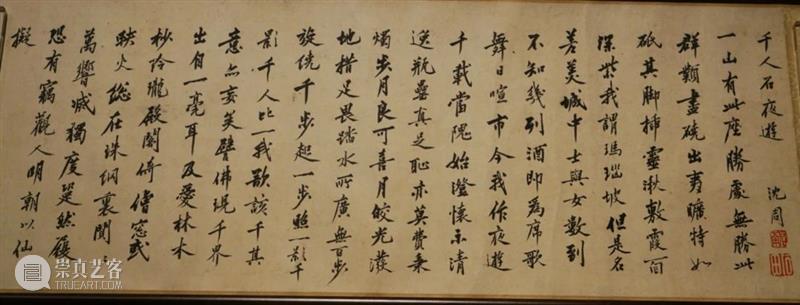 千人石夜遊 沈周
一山有此座勝處無勝此
群類盡硗出夷曠特如
砥其脚插靈湫敷霞面
深紫我謂瑪瑙坡但是名
差美城中士與女數到
不知幾列酒即為席歌
舞日喧市今我作夜遊
千載當隗始澄懷示清
逸瓶罍真足恥亦莫費秉
燭步月良可喜月皎光潑
地措足畏踏水所廣無百步
旋繞千步起一步照一影千
影千人比一我欲該千其
意亦妄矣譬佛現千界
出自一毫耳及愛林木
杪玲瓏殿閣倚僧窓或
映火總在珠網裏闃〻
萬響滅獨度跫然履
恐有竊觀人明朝以仙
擬
崇真艺客